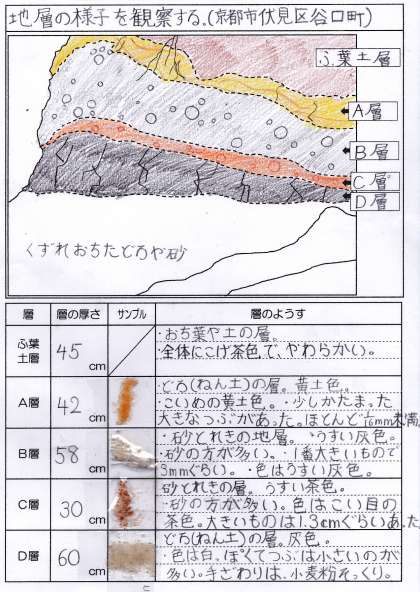 地層の様子を観察する.(京都市伏見区谷口町)
ふ葉土層
A層
B層
C層
D層
くずれおちたどろや砂
層 層の厚さ サンプル 層のようす
ふ葉土層 45cm
・おち葉や土の層。
・全体にこげ茶色で、やわらかい。
A層 42cm
どろ(ねん土)の層。黄土色。
・こいめの黄土色。・少しかたまった
大きなつぶがあった。ほとんど1/16mm未満
B層 58cm
・砂とれきの地層。・うすい灰色。
・砂の方が多い。・1番大きいもので
3mmぐらい。・色はうすい灰色。
C層 30cm
砂とれきの層。うすい茶色。
・砂の方が多い。色はこい目の
茶色。大きいものは1.3cmぐらいあった
D層 60cm
どろ(ねん土)の層。灰色。
・色は白っぽくてつぶは小さいのが
多い。手ざわりは、小麦粉そっくり。